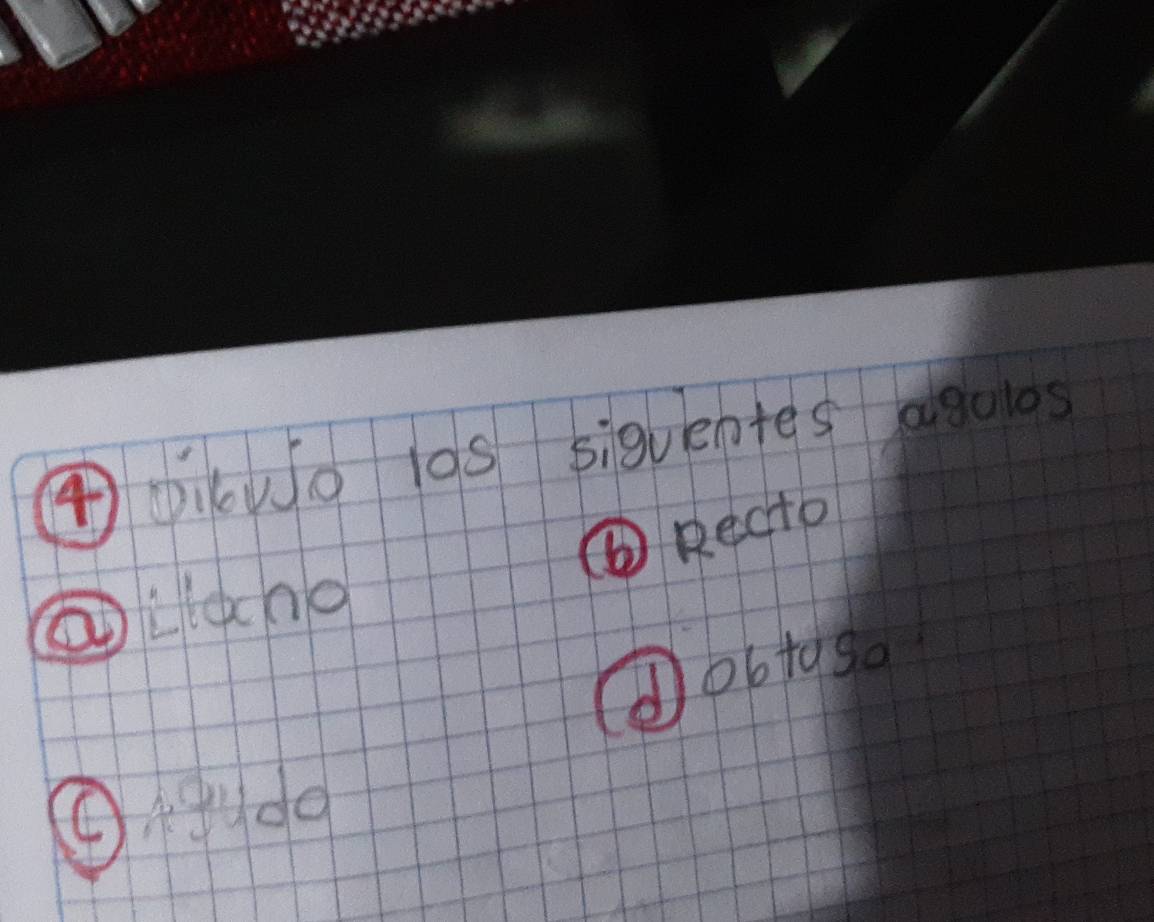 4 Dibujo los siguentes agulos
a Llano
b Recto
c Agudo
d Obtuso